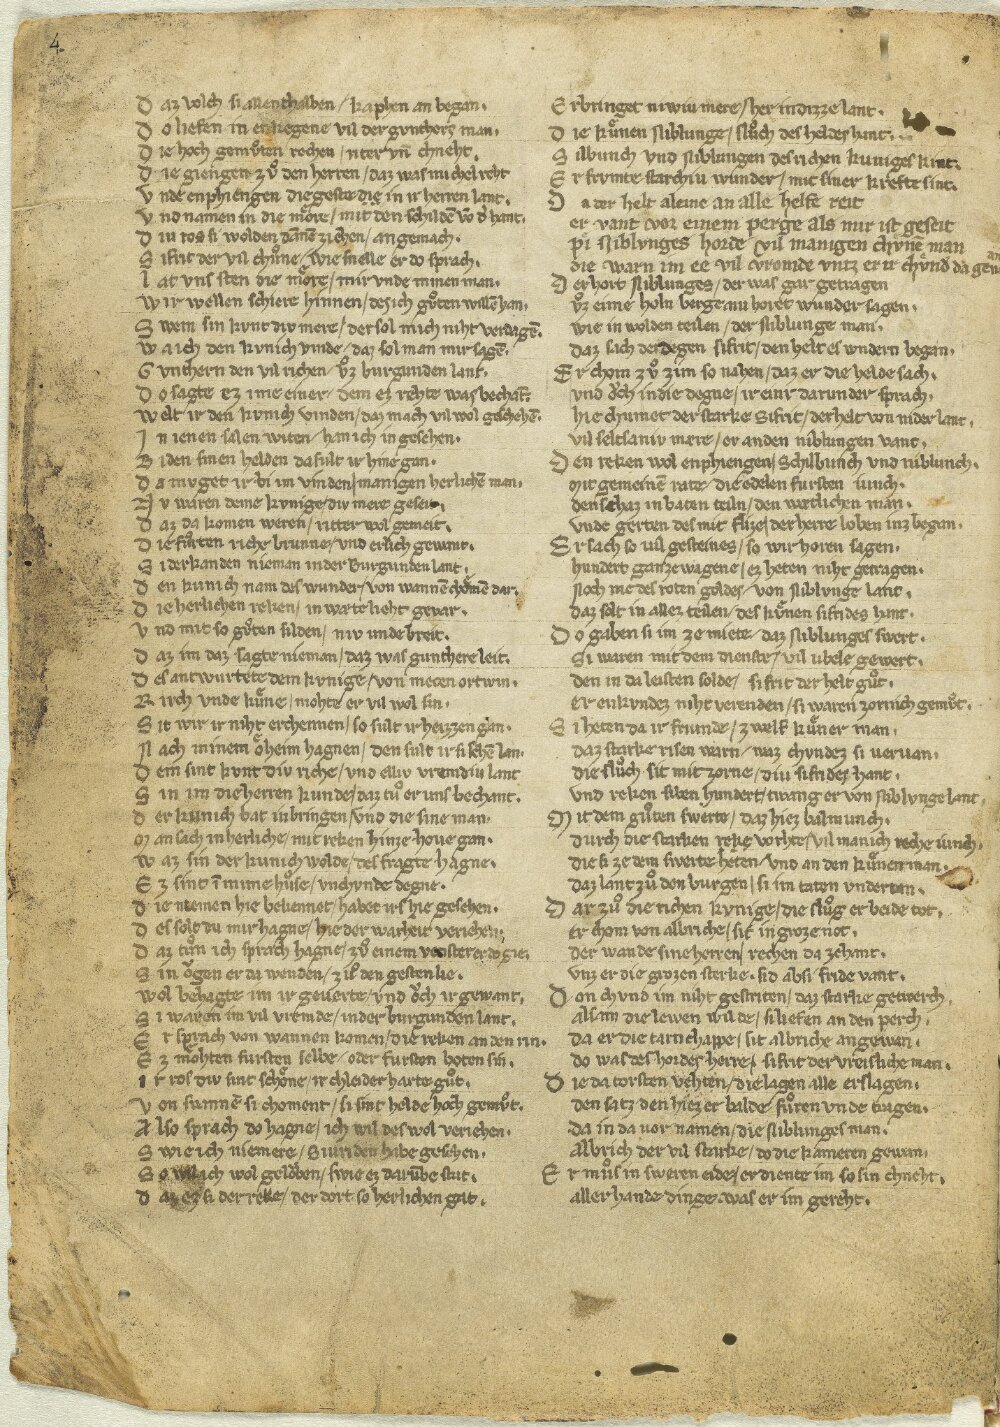 4.
D az volch si allenthalben / kaphen an began.
D o liefen in enkegene vil der gvntherſ man.
D ie hoch gemůten rechen / riter vn̄ chneht.
D ie giengen zů den herren / daz was michel reht
V nde enphiengen die geste die in ir herren lant.
V nd namen in die more / mit den schilden vō d' hant.
D iu ros si wolden dannē ziehen / an gemach.
S ifrit der vil chůne / wie snelle er do sprach.
L at vns sten die more / mir vnde minen man.
W ir wellen schiere hinnen / des ich gůten willē han.
S wem sin kvnt div mere / der sol mich niht verdagē.
W a ich den kvnich vinde / daz sol man mir sagē.
G vnthern den vil richen / vz burgunden lant.
D o sagte ez ime einer / dem ez rehte was bechāt.
W elt ir den kvnich vinden / daz mach vil wol geschehē.
I n ienen salen witen / han ich in gesehen.
B i den sinen helden da sult ir hine gan.
D a mvget ir bi im vinden / manigen herlichē man.
N v waren deme kvnige div mere geseit.
D az da komen weren / ritter wol gemeit.
D ie fůrten riche brunne / vnd erlich gewant.
S i derkanden nieman in der burgunden lant.
D en kunich nam des wunder / von wannē chomē dar.
D ie herlichen reken / in wate lieht gevar.
V nd mit so gůten silden / niv unde breit.
D az im daz sagte nieman / daz was gunthere leit.
D es antwurtete dem kvnige / von mecen ortwin.
R iich vnde kůne / mohte er vil wol sin.
S it wir ir niht erchennen / so sult ir heizzen gan.
N ach minem oheim hagnen / den sult ir si sehē lan.
D em sint kvnt div riche / vnd elliv vremdiu lant
S in im die herren kunde / daz tů er uns bechant.
D er kunich bat in bringen / vnd die sine man.
M an sach in herliche / mit reken hinze hove gan.
W az sin der kunich wolde / des fragte hagne.
E z sint ī mime hůse / vnchunde degne.
D ie niemen hie bekennet / habet irs hie gesehen.
D es solt du mir hagne / hie der warheit veriehen.
D az tůn ich sprach hagne / zů einem venster er do gie.
S in ogen er da wenden / zů den gesten lie.
Wol behagte im ir geuerte / vnd och ir gewant.
S i waren im vil vremde / in der burgunden lant.
E r sprach von wannen komen / die reken an den rin.
E z mohten fursten selbe / oder fursten boten sin.
I r ros div sint schone / ir chleider harte gůt.
V on swannē si choment / si sint helde hoch gemůt.
A lso sprach do hagne / ich wil des wol veriehen.
S wie ich niemere / Siuriden habe gesehen.
S o wil ich wol gelovben / swie ez darvmbe stat.
D az ez si der reke / der dort so herlichen gat.
E r bringet niwiu mere / her in dizze lant.
D ie kůnen niblunge / slůch des heldes hant.
S ilbunch vnd niblungen des richen kuniges kint.
E r frvmte starchiu wunder / mit siner krefte sint.
D a der helt aleine an alle helfe reit
er vant vor einem perge als mir ist geseit
pi niblvnges horde vil manigen chvnē man
die warn im ee vil vromde vntz er ir chvnd da gewan
D er hort niblunges / der was gar getragen
vz eime holn berge nu horet wunder sagen.
wie in wolden teilen / der niblunge man.
daz sach der degen sifrit / den helt es wndern began.
E r chom zů zim so nahen / daz er die helde sach.
vnd och in die degne / ir einr darunder sprach.
hie chumet der starke Sifrit / der helt von nider lant.
vil seltsaniv mere / er an den niblungen vant.
D en reken wol enphiengen / Schilbunch vnd niblunch.
mit gemeinē rate / die edelen fursten iunch.
den schaz in baten teiln / den wetlichen man.
vnde gerten des mit flize / der herre loben inz began.
E r sach so vil gesteines / so wir horen sagen.
hundert ganze wagene / ez heten niht getragen.
Noch me des roten goldes / von niblvnge lant.
daz solt in allez teilen / des kůnen sifrides hant.
D o gaben si im ze miete / daz niblunges swert.
Si waren mit dem dienste / vil ubele gewert.
den in da leisten solde / sifrit der helt gůt.
er enkvndez niht verenden / si waren zornich gemůt.
S i heten da ir friunde / zwelf kůner man.
daz starke risen warn / waz chvndez si vervan.
die slůch sit mit zorne / diu sifrides hant.
vnd reken siben hundert / twang er von niblvnge lant.
M it dem gůten swerte / daz hiez balmunch.
durch die starken reke vorhte / vil manich reche iunch.
die si ze dem swerte heten / vnd an den kůnen man.
daz lant zů den burgen / si im taten vndertan.
D ar zů die richen kvnige / die slůg er beide tot.
er chom von albriche / sit in groze not.
der wande sine herren / rechen da zehant.
vnz er die grozen sterke. sid ab si fride vant.
D on chvnd im niht gestriten / daz starke getwerch.
alsam die lewen wilde / si liefen an den perch.
da er die tarnchappe / sit albriche angewan.
do was des hordes herre / sifrit der vreisliche man.
D ie da torsten vehten / die lagen alle erslagen.
den satz den hiez er balde / fůren vnde tragen.
da in da vor namen / die niblunges man.
albrich der vil starke / do die kameren gewan.
E r můs in sweren eide / er diente im so sin chneht.
aller hande dinge. was er im gereht.